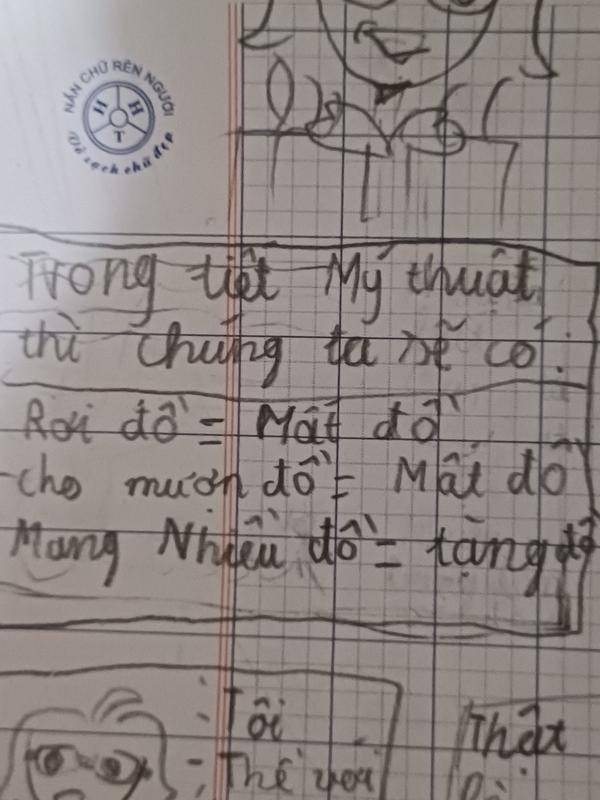 NẮN CHỮ RÈN NGƯỜI
H H T
Vở sạch chữ đẹp
Trong tiết Mý thuật
thì chúng ta sẽ có:
Rơi đồ = Mất đồ
cho mượn đồ = Mất đồ
Mang Nhiều đồ = tặng đồ
: Tôi
- Thế
Thật